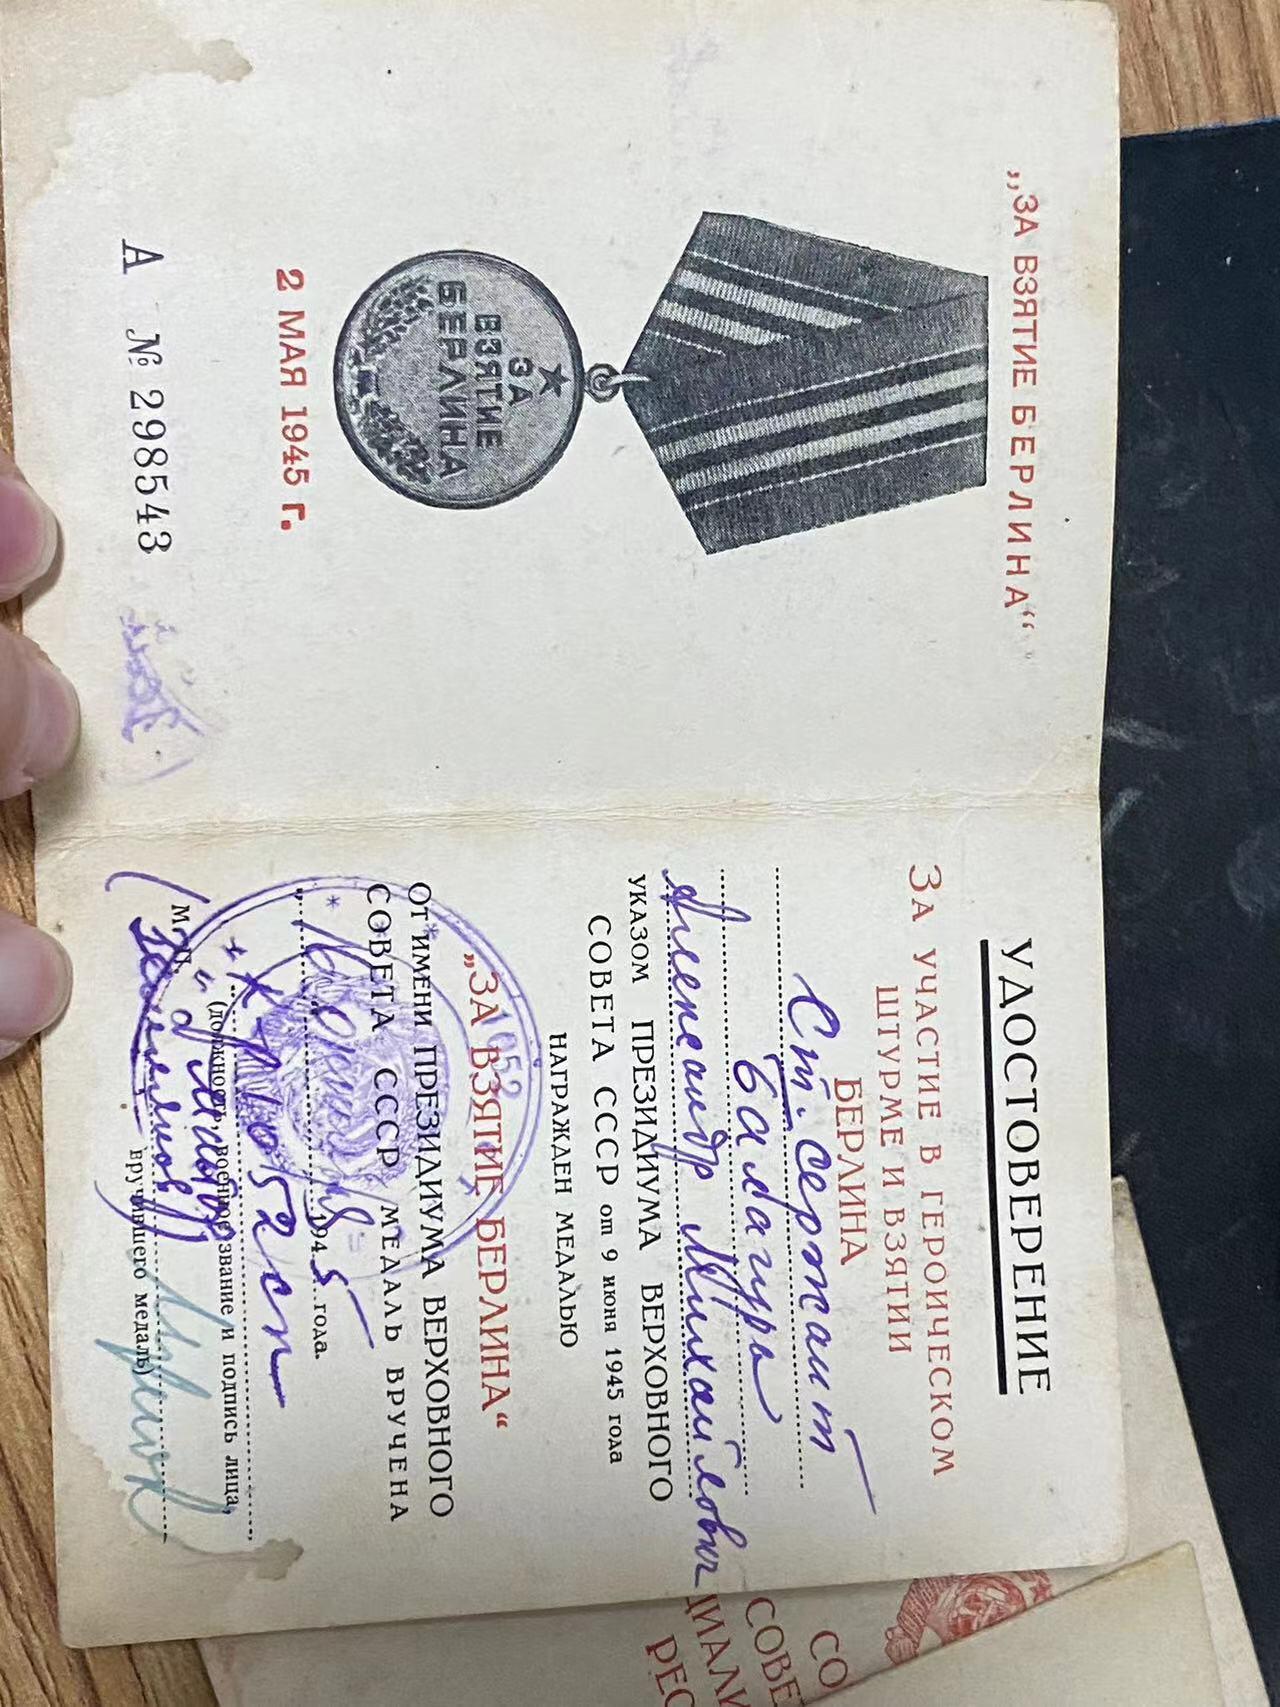 „ЗА ВЗЯТИЕ БЕРЛИНА“
ЗА
ВЗЯТИЕ
БЕРЛИНА
2 МАЯ 1945 г.
А № 298543
УДОСТОВЕРЕНИЕ
ЗА УЧАСТИЕ В ГЕРОИЧЕСКОМ
ШТУРМЕ И ВЗЯТИИ
БЕРЛИНА
Ст. сержант
Балагура
Александр Михайлович
УКАЗОМ ПРЕЗИДИУМА ВЕРХОВНОГО
СОВЕТА СССР от 9 июня 1945 года
НАГРАЖДЕН МЕДАЛЬЮ
„ЗА ВЗЯТИЕ БЕРЛИНА“
ОТ ИМЕНИ ПРЕЗИДИУМА ВЕРХОВНОГО
СОВЕТА СССР МЕДАЛЬ ВРУЧЕНА
1945 года.
1052 сп
М. П. (должность, военное звание и подпись лица,
вручившего медаль)
1052
СО
СОВЕ
ЦИАЛИ
РЕС